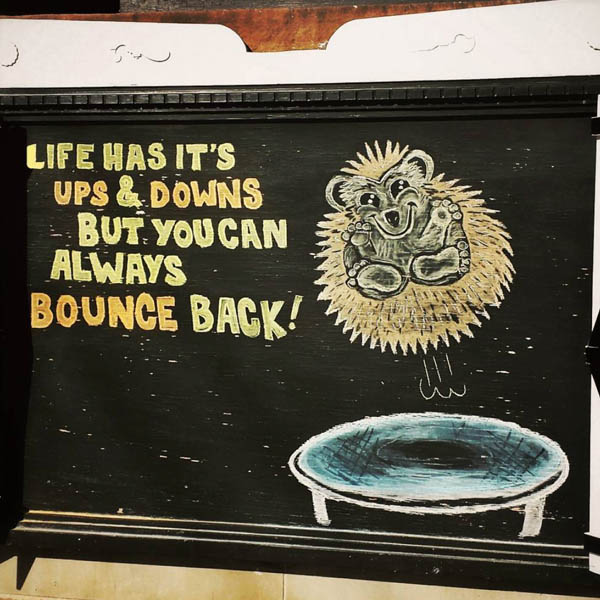 LIFE HAS IT'S
UPS & DOWNS
BUT YOU CAN
ALWAYS
BOUNCE BACK!